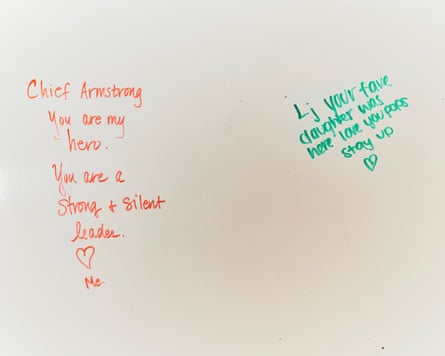 Chief Armstrong
You are my
hero.
You are a
Strong + Silent
leader.
♡
Me.
Lj your fave
daughter was
here love you pops
stay up
♡